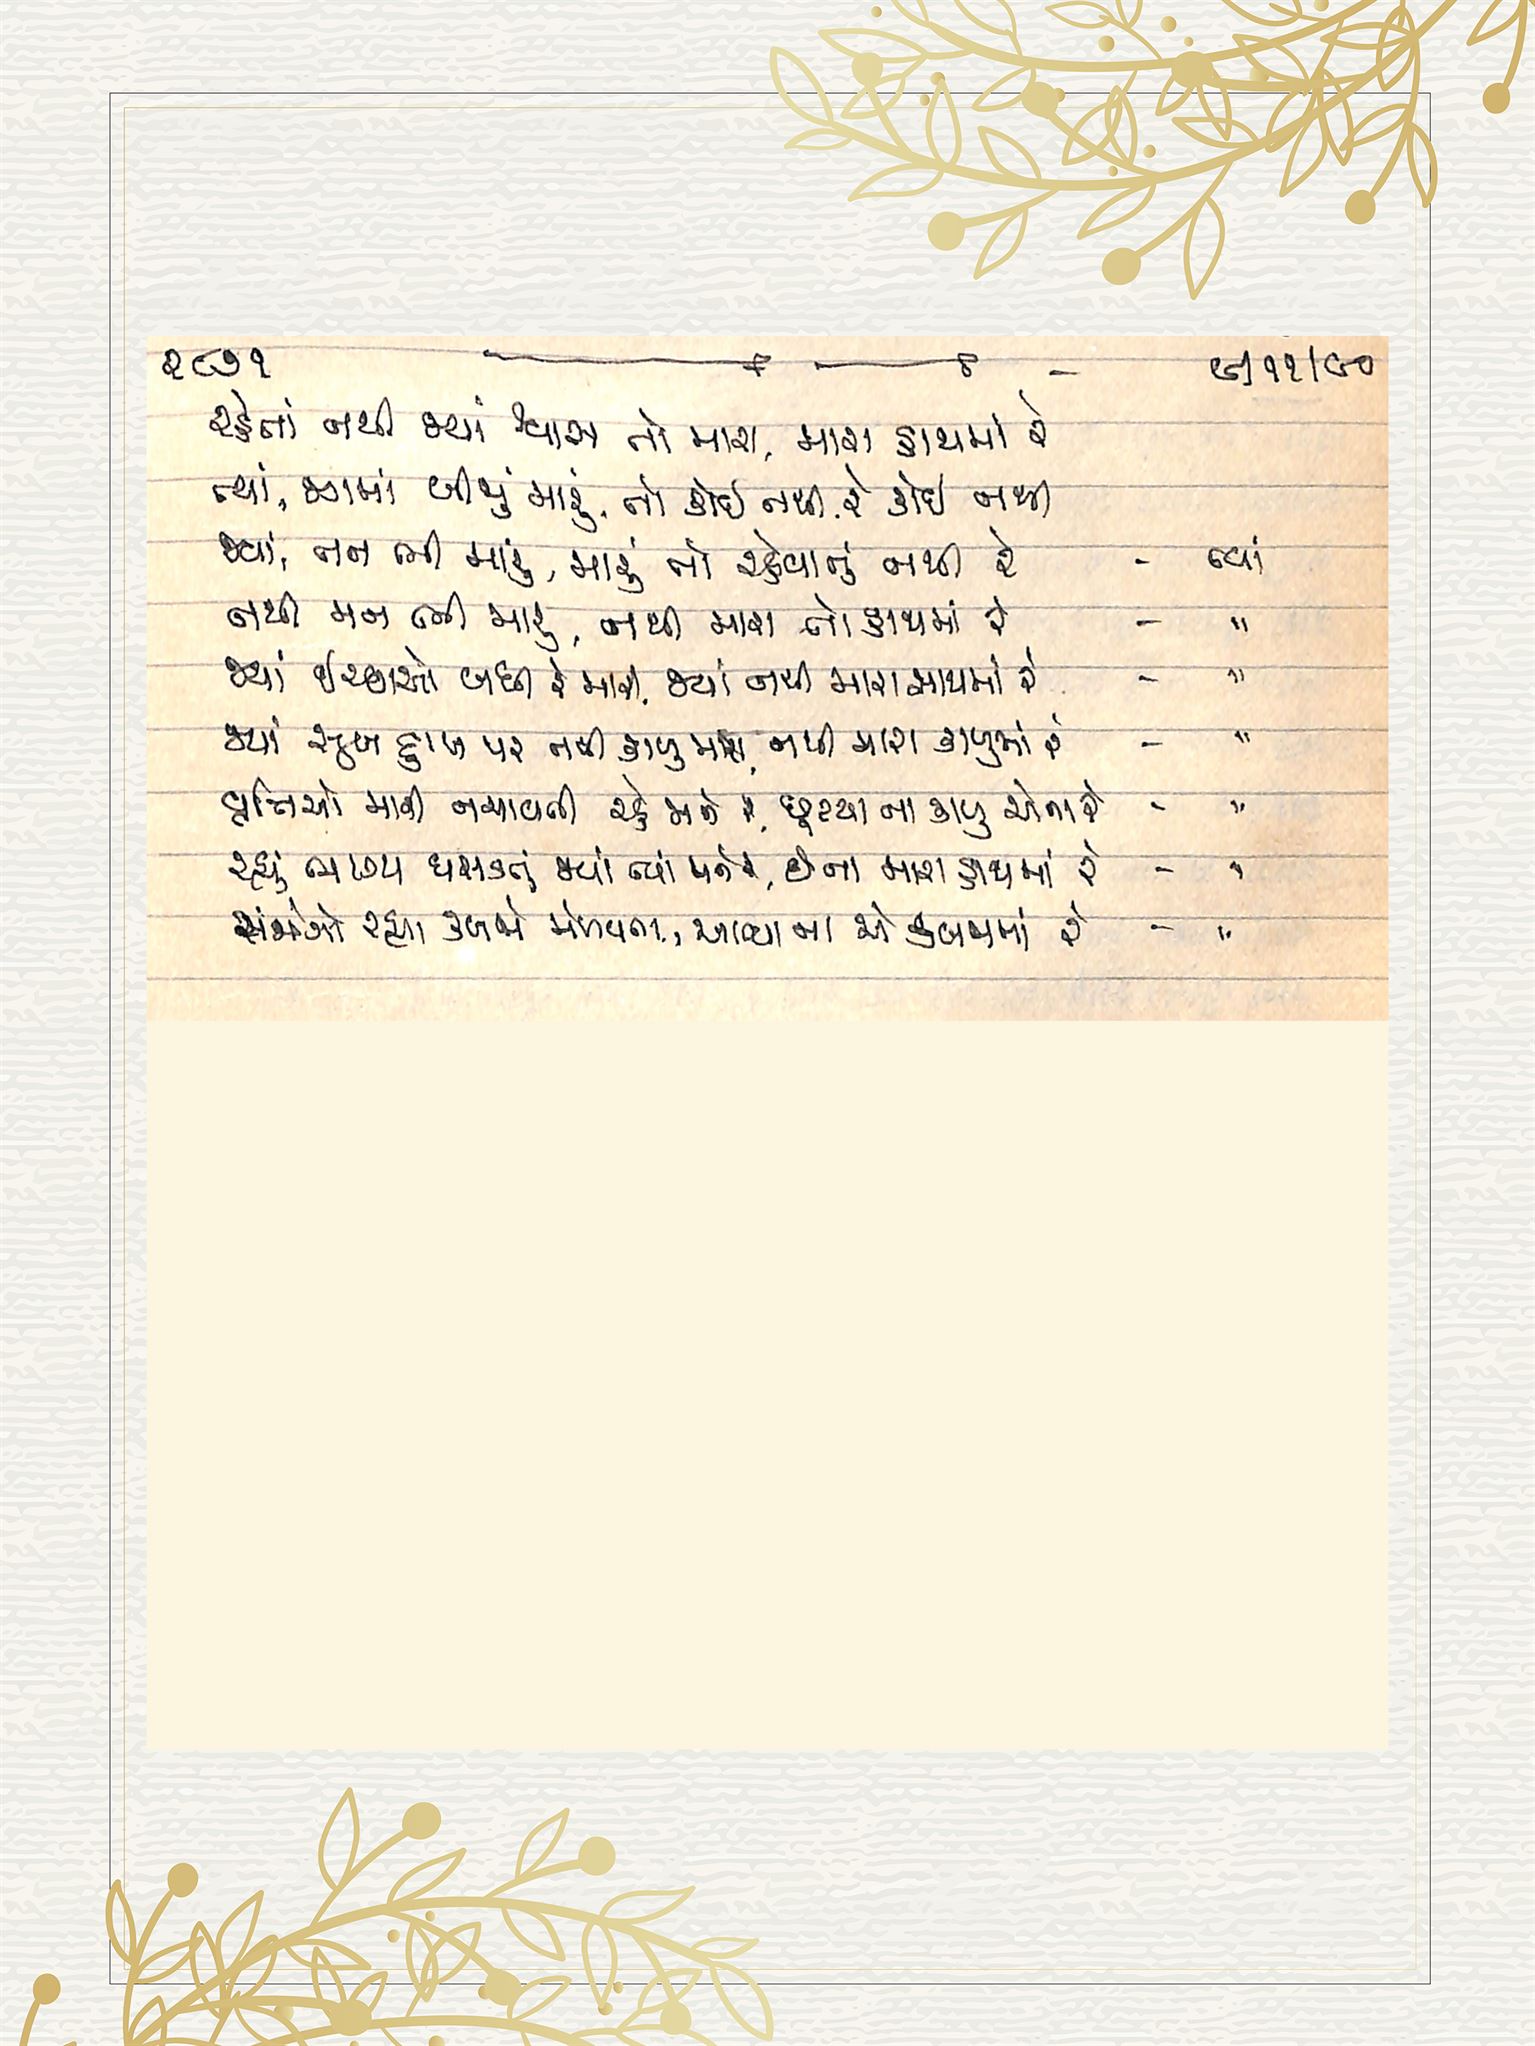 ૨૮૭૧ — ૯/૧૧/૯૦
રહેતાં નથી જ્યાં શ્વાસ તો મારા, મારા હાથમાં રે
ત્યાં, જગમાં બીજું મારું, તો કોઈ નથી રે કોઈ નથી
જ્યાં, તન ભી મારું, મારું તો રહેવાનું નથી રે - ત્યાં
નથી મન ભી મારું, નથી મારા તો હાથમાં રે - "
જ્યાં ઈચ્છાઓ બધી રે મારી, જ્યાં નથી મારા સાથમાં રે - "
જ્યાં સુખ દુઃખ પર નથી કાબુ મારા, નથી મારા કાબુમાં રે - "
વૃત્તિઓ મારી નચાવતી રહે મને રે, છૂટયા ના કાબુ એના રે - "
રહ્યું ભાગ્ય ઘસડતું જ્યાં ત્યાં મને રે, છે ના મારા હાથમાં રે - "
સંજોગો રહ્યા કબજો મેળવતા, આવ્યા ના એ કબજામાં રે - "